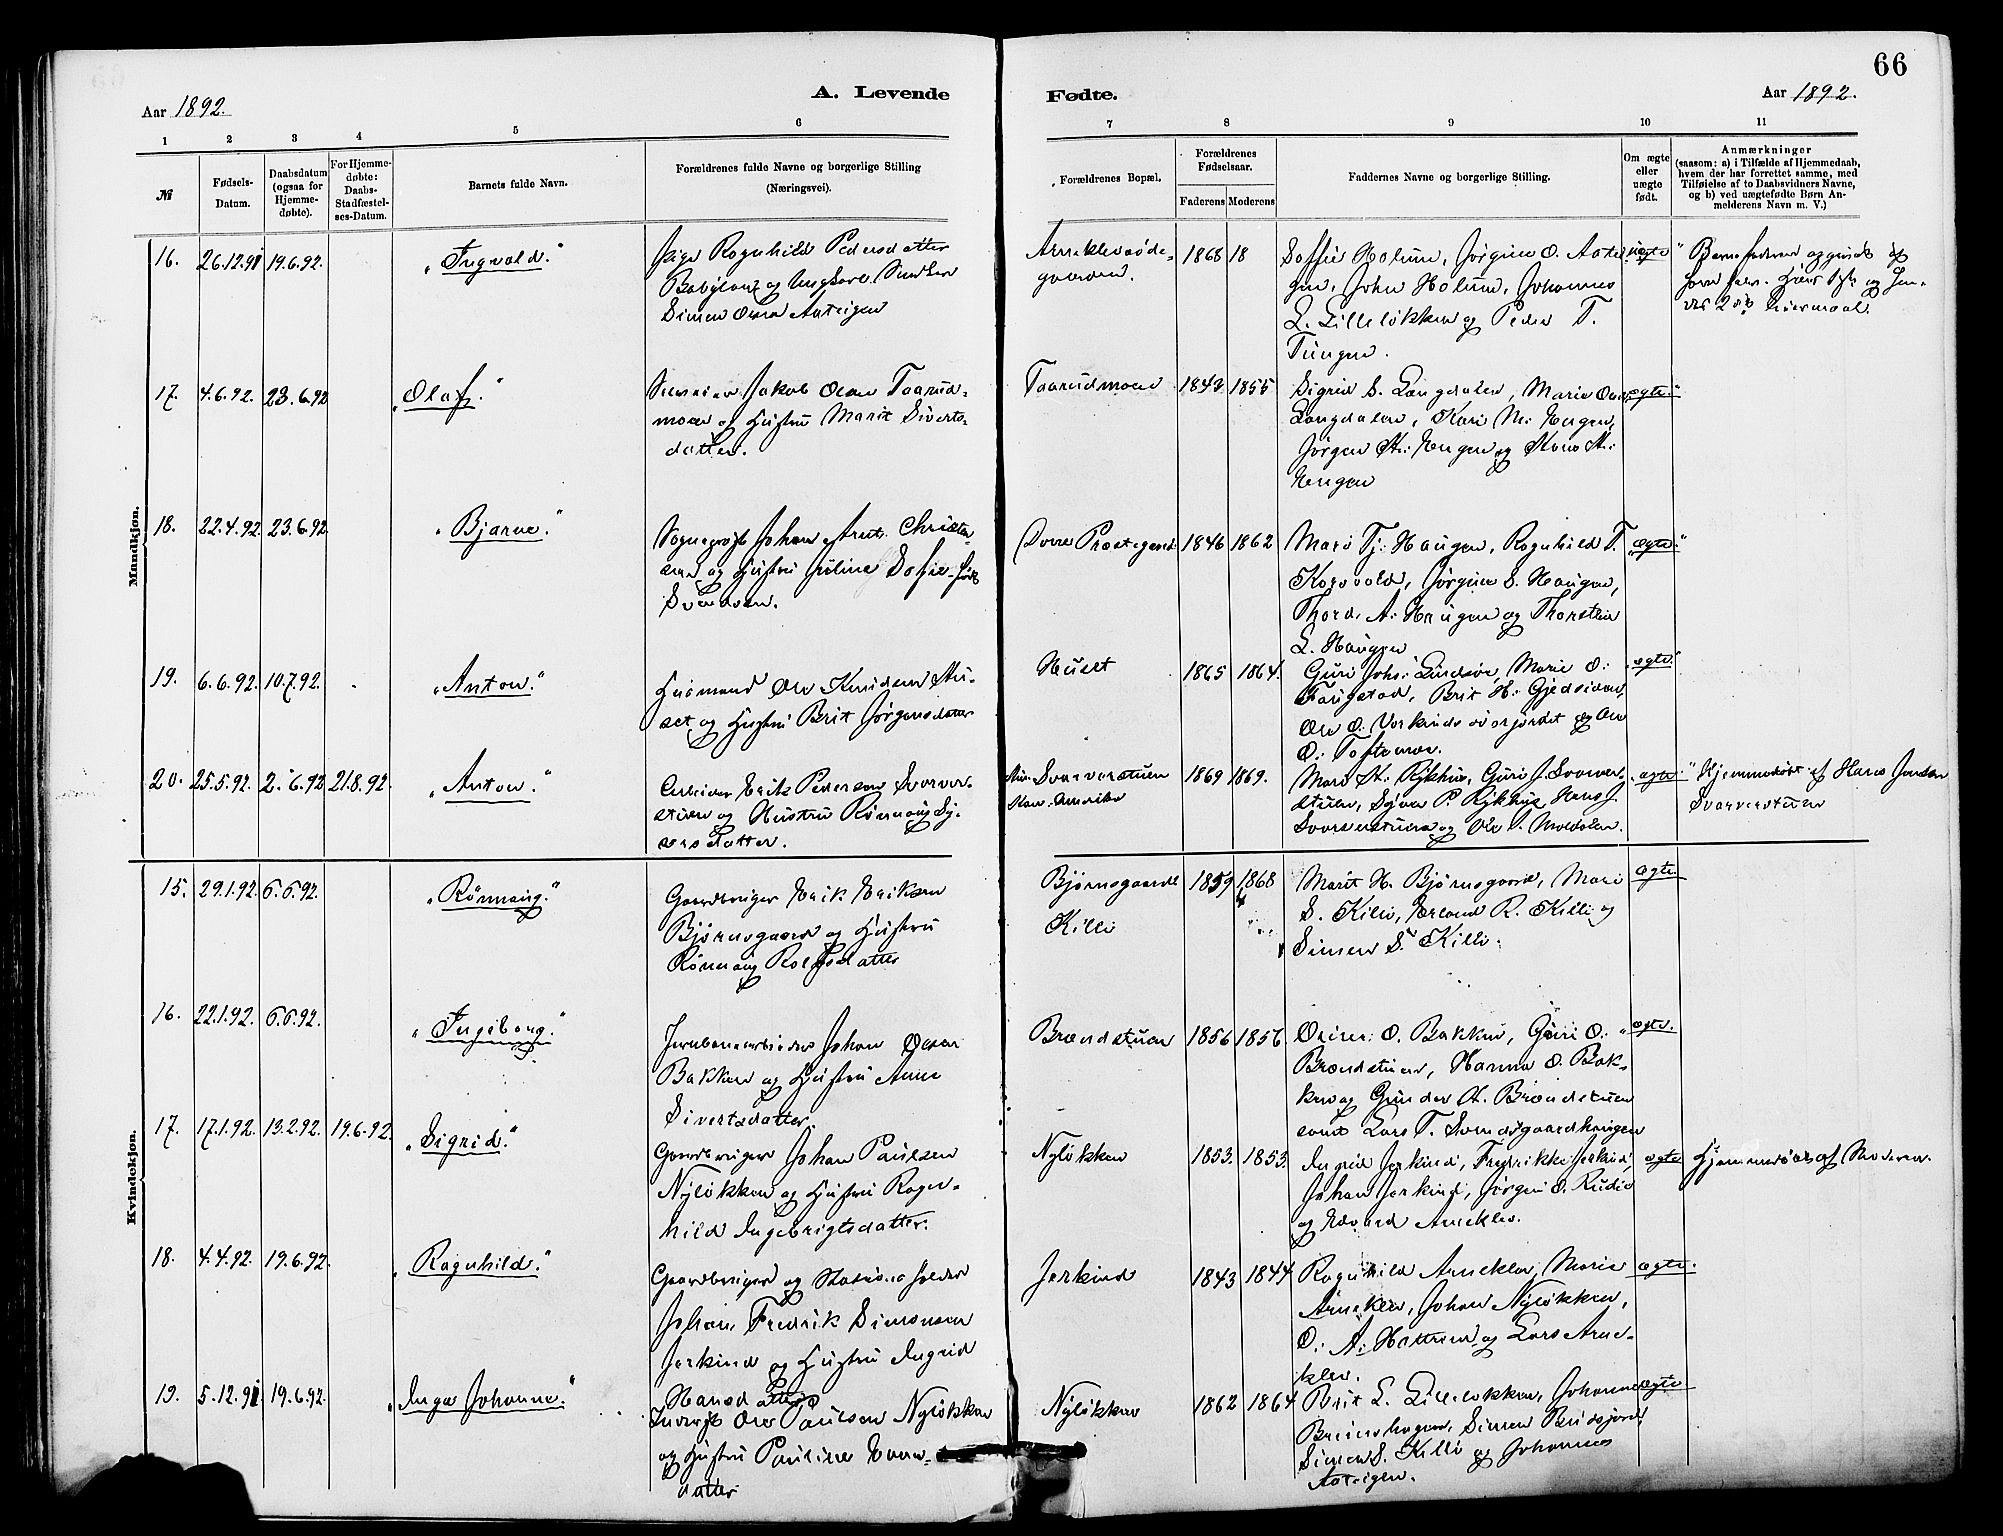 66
Aar 1892.
A. Levende
Fødte.
Aar 1892.
1 2 3 4 5 6 7 8 9 10 11
№
Fødsels-
Datum.
Daabsdatum
(ogsaa for
Hjemme-
døbte).
For Hjemme-
døbte:
Daabs-
Stadfæstel-
ses-Datum.
Barnets fulde Navn.
Forældrenes fulde Navne og borgerlige Stilling
(Næringsvei).
Forældrenes Bopæl.
Forældrenes
Fødselsaar.
Faderens Moderens
Faddernes Navne og borgerlige Stilling.
Om ægte
eller
uægte
født.
Anmærkninger
(saasom: a) i Tilfælde af Hjemmedaab,
hvem der har forrettet samme, med
Tilføielse af to Daabsvidners Navne,
og b) ved uægtefødte Børn An-
melderens Navn m. V.)
Mandkjøn.
16. 26.12.91 19.6.92. "Ingvald."
Pige Ragnhild Pedersdatter
og Ungkarl
Simen Olsen Aateigen
1868 18
Holum, Jørgine O. Aatei-
gen, John Holum, Johannes
L. Lilleløkken og Peder T.
Tungen.
uægte
17. 4.6.92. 23.6.92 "Olaf."
Jakob Olsen Taarud-
moen og Hustru Marit Siverts-
datter.
Taarudmoen
1843 1855
Sigrid S. Langdalen, Marie
Langdalen, Kari M. Engen,
Jørgen H. Engen og Hans H.
Engen
"ægte."
18. 22.4.92. 23.6.92. "Bjarne."
Sogneprest Johan Christen-
sen og Hustru Juline Sofie født
Svendsen.
Dovre Præstegaard
1846 1862
Mari Tj. Haugen, Ragnhild T.
Korsvold, Jørgine S. Haugen,
Thord A. Haugen og Thorstein
L. Haugen
"ægte."
19. 6.6.92. 10.7.92. "Anton."
Husmand Ole Knudsen Hu-
set og Hustru Brit Jørgensdatter
Huset
1865 1864.
Guri Johs. Lindsøe, Marie O.
Faugstad, Brit H. Gjedsiden,
og Ole
O. Toftemoen.
"ægte."
20. 25.5.92. 2.6.92 21.8.92. "Anton."
Arbeider Erik Pedersen Svarver-
stuen og Hustru Rønnaug Sy-
versdatter.
Svarverstuen
Amerika
1869 1869.
Mari H. Rykhus, Guri J. Svarver-
stuen, Syver P. Rykhus, Hans J.
Svarverstuen og Ole J. Moldalen.
"ægte."
Hjemmedøbt af Hans Jonsen
Svarverstuen
Kvindekjøn.
15. 29.1.92. 6.6.92. "Rönnaug."
Gaardbruger Erik Eriksen
Bjørnsgaard og Hustru
Rønnaug Rolfsdatter
Bjørnsgaard
Killi
1859 1868
Marit H. Bjørnsgaard, Mari
S. Killi, Erland R. Killi og
Simen S. Killi.
ægte.
16. 22.1.92. 6.6.92. "Ingeborg."
Jernbanearbeider Johan Olsen
Bakken og Hustru Anne
Sivertsdatter.
Brændstuen
1856 1856.
O. Bakken, Guri O.
Brændstuen, Hanna O. Bak-
ken og Gunder H. Brændstuen
samt Lars T. Svendsgaardhaugen
"ægte.
17. 17.1.92. 13.2.92. 19.6.92. "Sigrid."
Gaardbruger Johan Paulsen
Nyløkken og Hustru Ragn-
hild Ingebrigtsdatter.
Nyløkken
1853. 1853.
Ingrid Jerkind, Fredrikke Jerkind,
Johan Jerkind, Jørgen O. Rudi
og Edvard Arneklev.
ægte
Hjemmedøbt af Moderen.
18. 4.4.92. 19.6.92. "Ragnhild."
Gaardbruger og Stationsholder
Johan Fredrik Simonsen
Jerkind og Hustru Ingrid
Hansdatter
Jerkind
1843 1844
Ragnhild Arneklev, Marie
Arneklev, Johan Nyløkken,
O. A. Hattrem og Lars Arne-
klev.
ægte.
19. 5.12.91 19.6.92. "Inga Johanna."
Inderst Ole Paulsen Nyløkken
og Hustru Pauline
datter
Nyløkken
1862 1864
Brit L. Lilleløkken, Johanne
Simen Budsjord,
Simen S. Killi og Johannes
Aateigen.
ægte